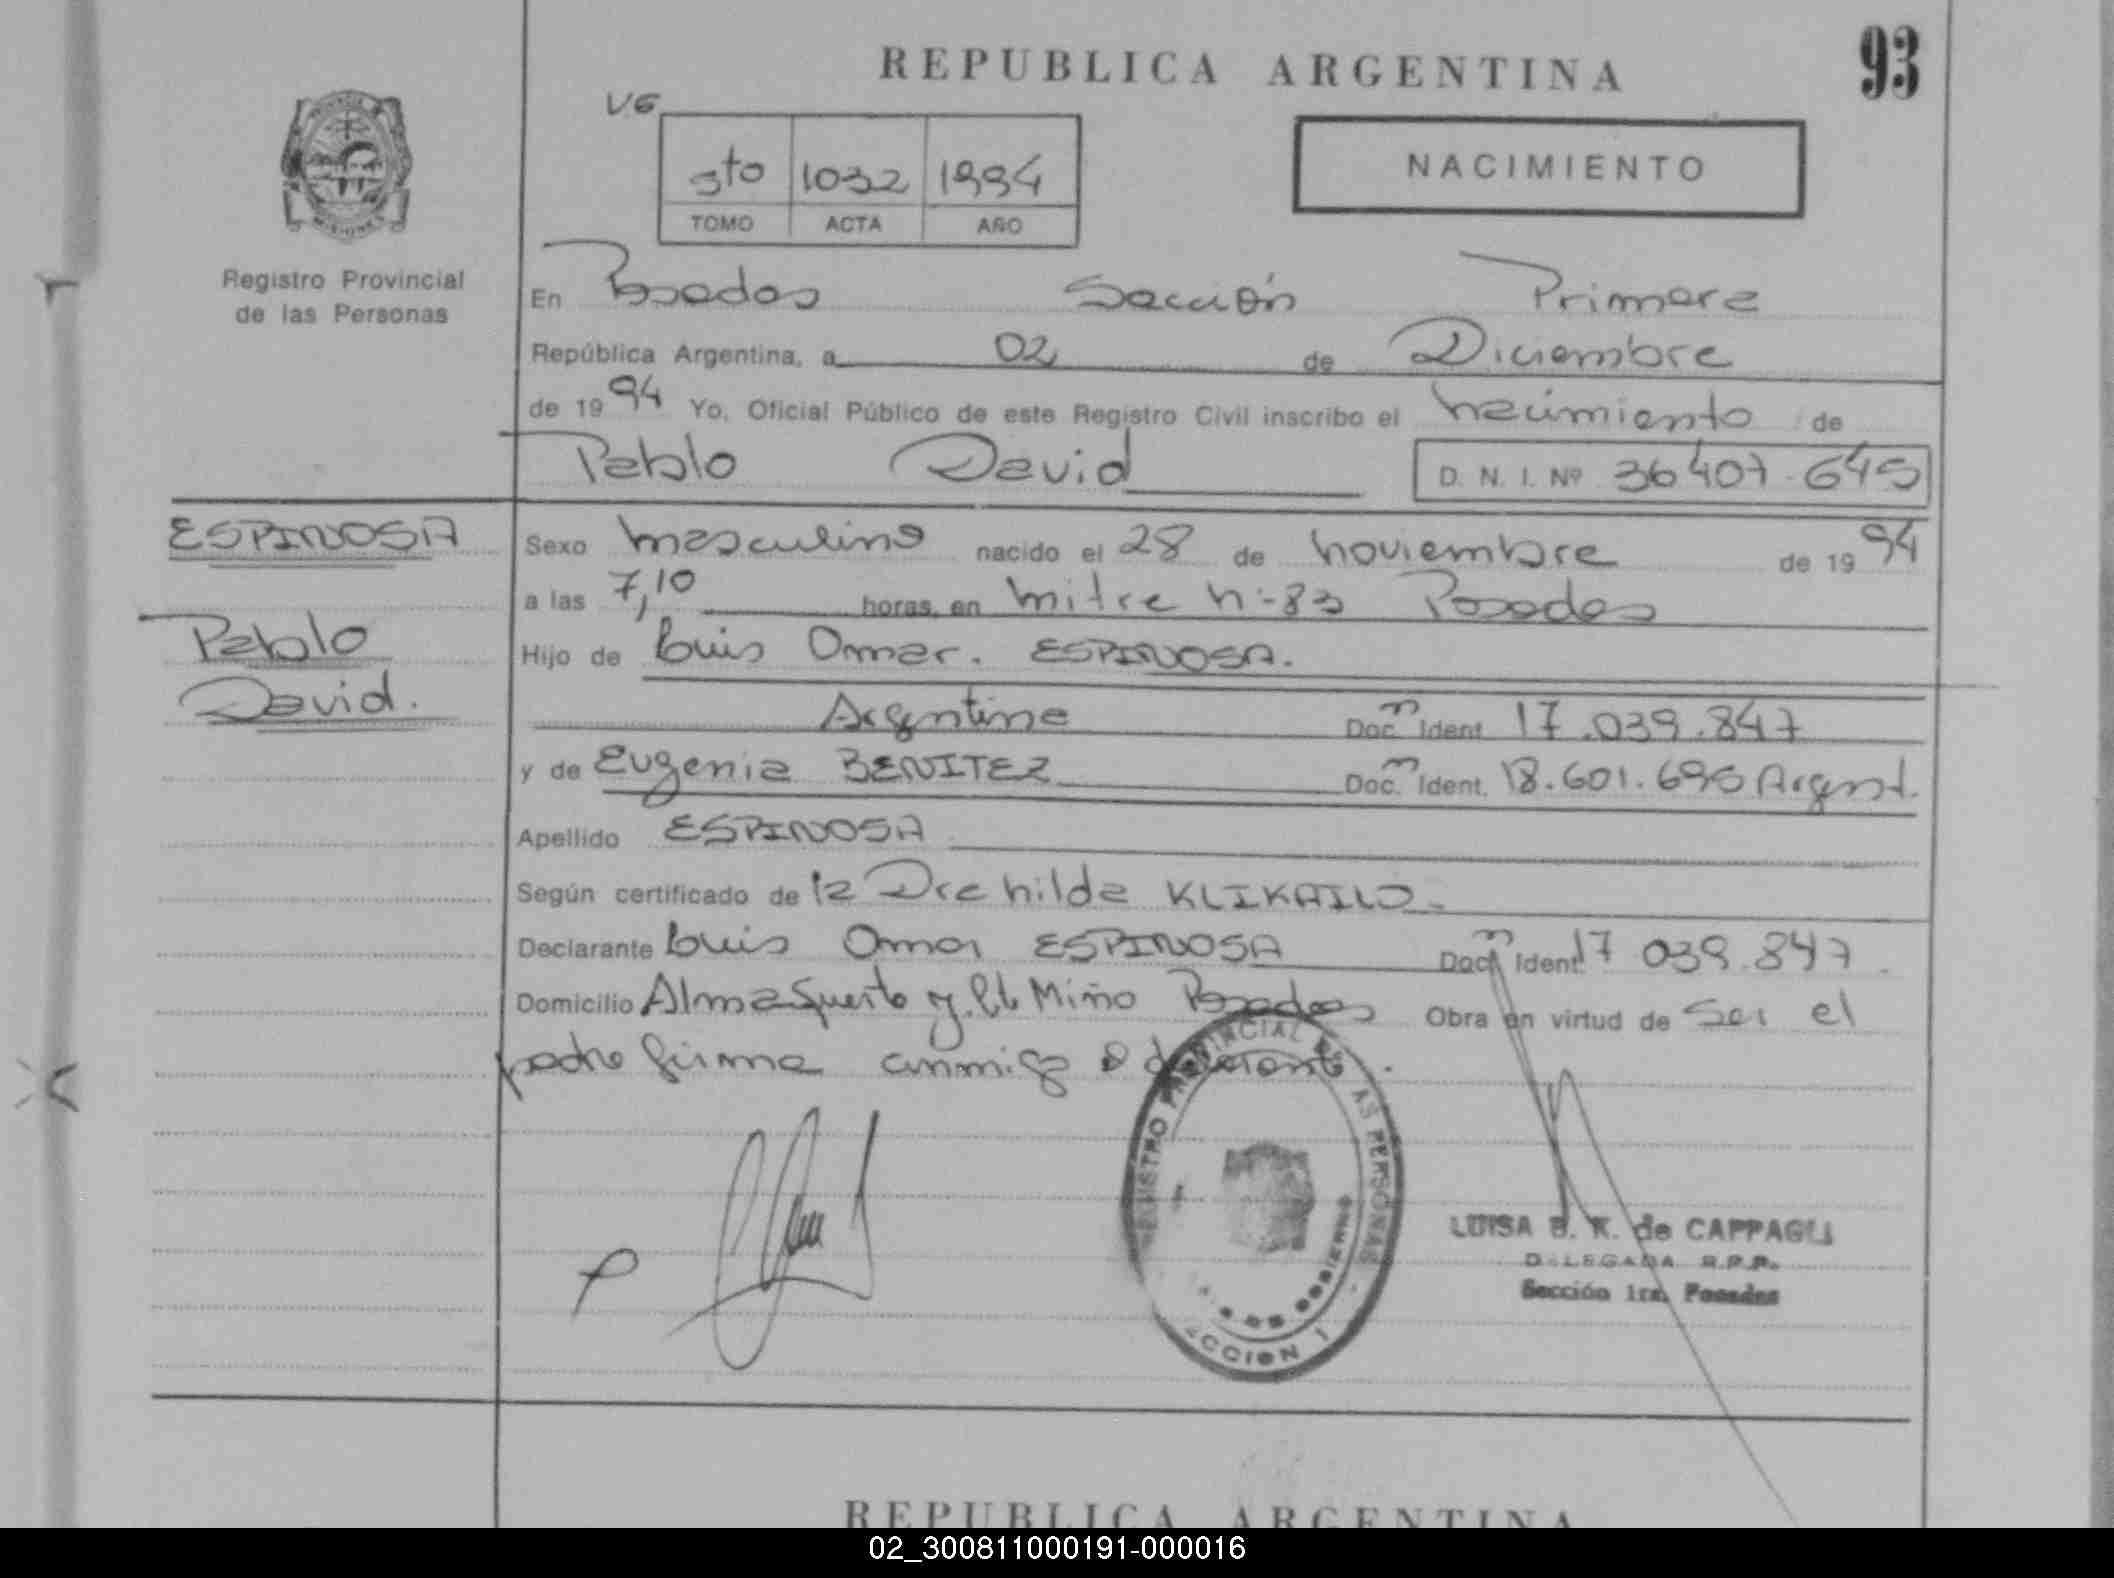 REPUBLICA ARGENTINA
93
V6
5to 1032 1994
TOMO ACTA AÑO
NACIMIENTO
MISIONES
Registro Provincial
de las Personas
En Posadas Sección Primera
República Argentina, a 02 de Diciembre
de 1994 Yo, Oficial Público de este Registro Civil inscribo el nacimiento de
Pablo David D. N. I. Nº 36407.645
ESPINOSA
Pablo
David.
Sexo masculino nacido el 28 de noviembre de 1994
a las 7,10 horas, en mitre n-83 Posadas
Hijo de Luis Omar. ESPINOSA.
Argentina Doc. Ident. 17.039.847
y de Eugenia BENITEZ Doc. Ident. 18.601.695 Argent.
Apellido ESPINOSA
Según certificado de la Dra hilda KLIKAILO
Declarante Luis Omar ESPINOSA Doc. Ident. 17 039.847.
Domicilio Almafuerte y Miño Posadas Obra en virtud de Ser el
padre firma conmigo
REGISTRO PROVINCIAL DE LAS PERSONAS
LUISA B. K. de CAPPAGLI
DELEGADA R.P.P.
Sección 1ra. Posadas
REPUBLICA ARGENTINA
02_300811000191-000016